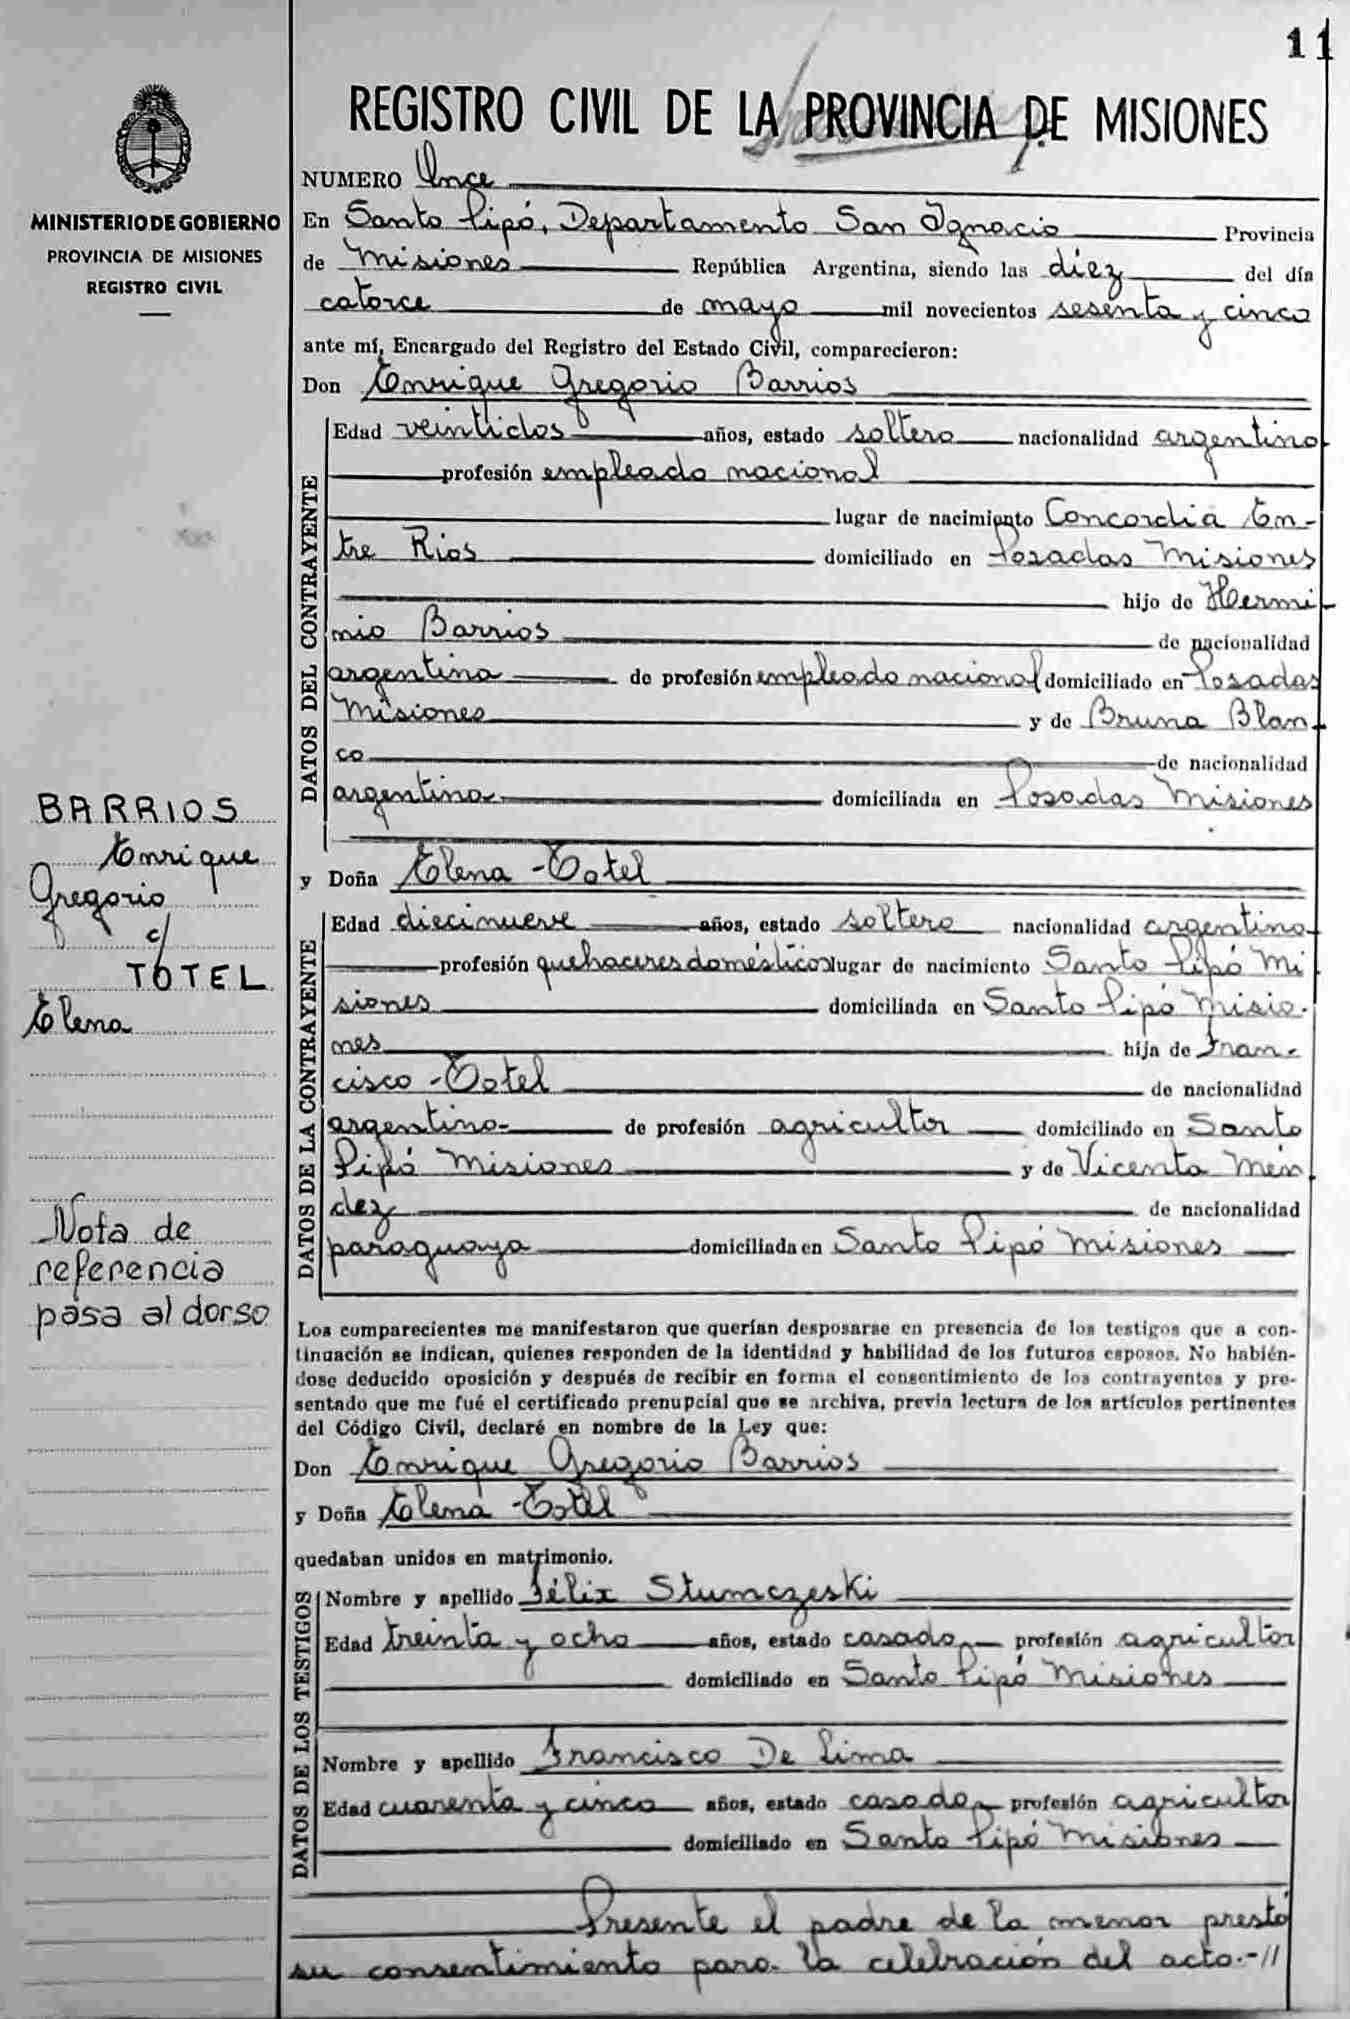 11
REGISTRO CIVIL DE LA PROVINCIA DE MISIONES
MINISTERIO DE GOBIERNO
PROVINCIA DE MISIONES
REGISTRO CIVIL
NUMERO Once
En Santo Pipó, Departamento San Ignacio Provincia
de Misiones República Argentina, siendo las diez del día
catorce de mayo mil novecientos sesenta y cinco
ante mí, Encargado del Registro del Estado Civil, comparecieron:
Don Enrique Gregorio Barrios
DATOS DEL CONTRAYENTE
Edad veintidos años, estado soltero nacionalidad argentino
profesión empleado nacional
lugar de nacimiento Concordia En-
tre Rios domiciliado en Posadas Misiones
hijo de Hermi-
nio Barrios de nacionalidad
argentina de profesión empleado nacional domiciliado en Posadas
Misiones y de Bruna Blan-
co de nacionalidad
argentina domiciliada en Posadas Misiones
BARRIOS
Enrique
Gregorio
c/
TOTEL
Elena
y Doña Elena Totel
DATOS DE LA CONTRAYENTE
Edad diecinueve años, estado soltera nacionalidad argentina
profesión quehaceres domésticos lugar de nacimiento Santo Pipó Mi
siones domiciliada en Santo Pipó Misio-
nes hija de Fran-
cisco Totel de nacionalidad
argentino de profesión agricultor domiciliado en Santo
Pipó Misiones y de Vicenta Mén
dez de nacionalidad
paraguaya domiciliada en Santo Pipó Misiones
Nota de
referencia
pasa al dorso
Los comparecientes me manifestaron que querían desposarse en presencia de los testigos que a con-
tinuación se indican, quienes responden de la identidad y habilidad de los futuros esposos. No habién-
dose deducido oposición y después de recibir en forma el consentimiento de los contrayentes y pre-
sentado que me fué el certificado prenupcial que se archiva, previa lectura de los artículos pertinentes
del Código Civil, declaré en nombre de la Ley que:
Don Enrique Gregorio Barrios
y Doña Elena Totel
quedaban unidos en matrimonio.
DATOS DE LOS TESTIGOS
Nombre y apellido Félix Stumczeski
Edad treinta y ocho años, estado casado profesión agricultor
domiciliado en Santo Pipó Misiones
Nombre y apellido Francisco De Lima
Edad cuarenta y cinco años, estado casado profesión agricultor
domiciliado en Santo Pipó Misiones
Presente el padre de la menor prestó
su consentimiento para la celebración del acto.-//